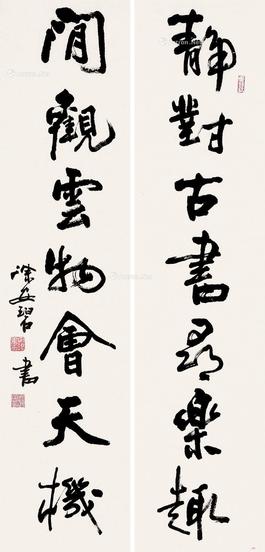 静對古書尋樂趣
閒觀雲物會天機
涂安碧書